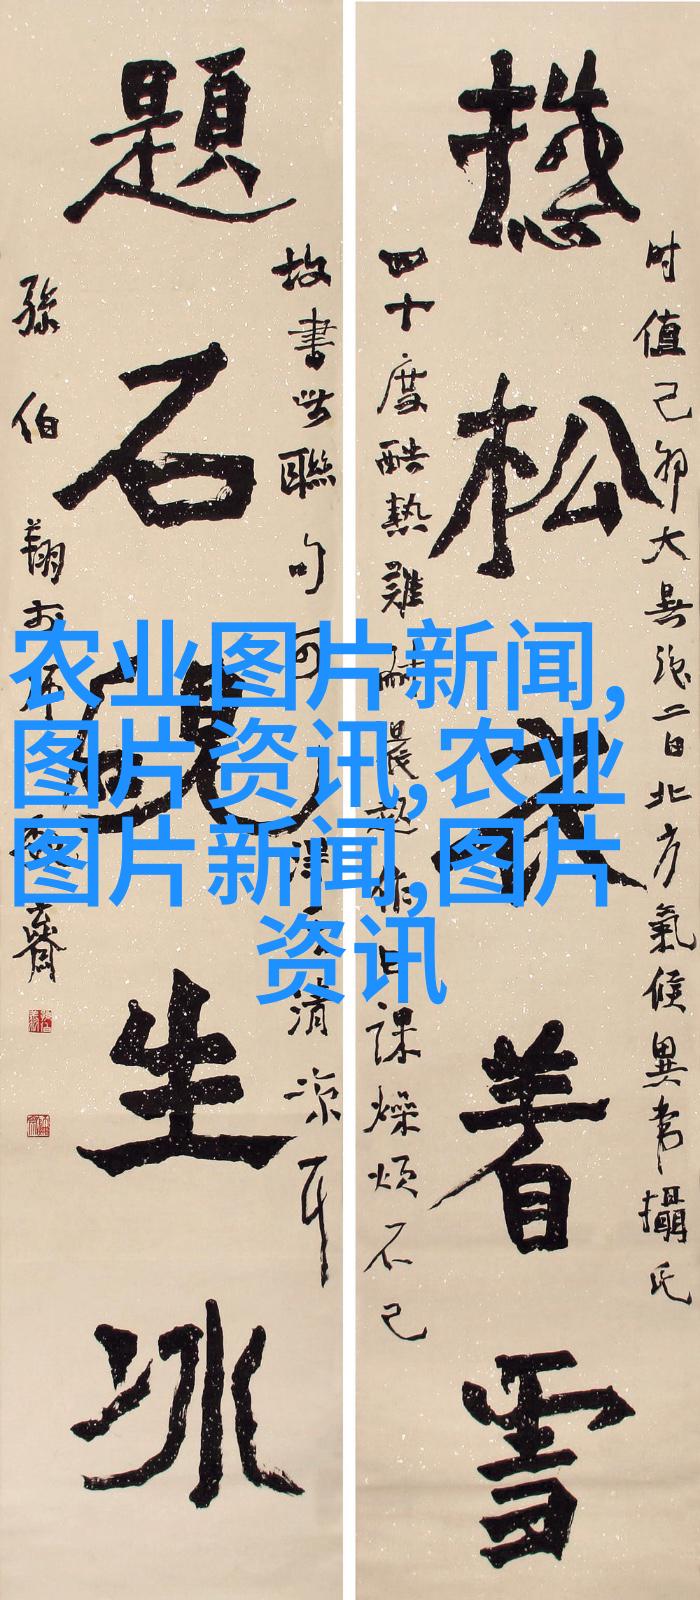 农业图片新闻,
图片资讯,农业
图片新闻,图片
资讯
时值己卯大暑後二日北方氣候異常攝氏
松衣着雪
四十度酷熱難耐晨起作日課燥煩不已
故書此聯句可清涼耳
題石硯生冰
孫伯翔於師齋